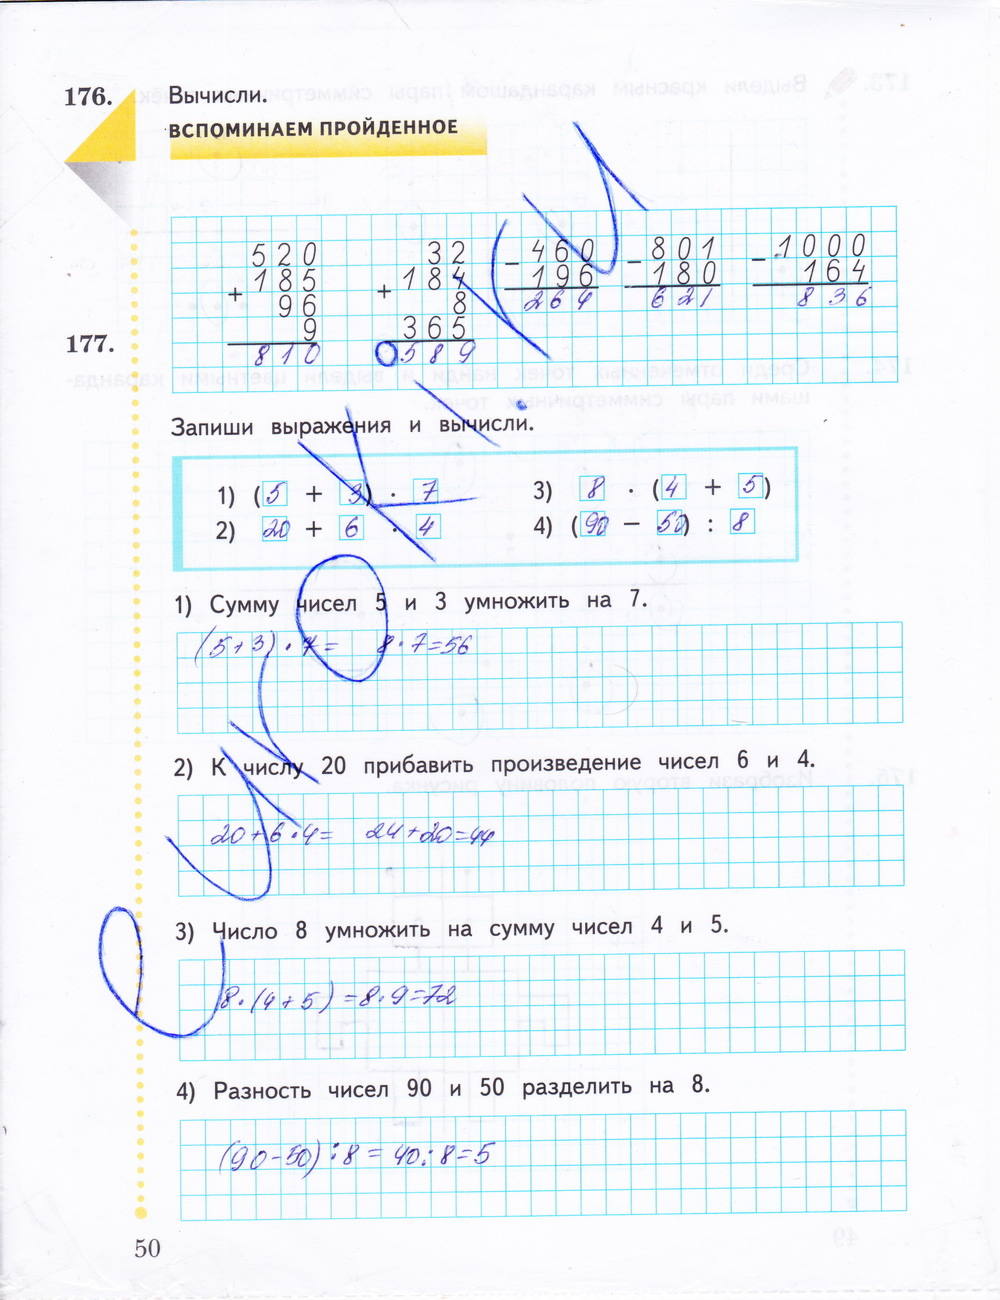 176. Вычисли.
ВСПОМИНАЕМ ПРОЙДЕННОЕ
520 32 - 460 - 801 - 1000
+ 185 + 184 196 180 164
96 8 264 621 836
9 365
810 589
177.
Запиши выражения и вычисли.
1) (5 + 3) · 7 3) 8 · (4 + 5)
2) 20 + 6 · 4 4) (90 − 50) : 8
1) Сумму чисел 5 и 3 умножить на 7.
(5+3)·7= 8·7=56
2) К числу 20 прибавить произведение чисел 6 и 4.
20+6·4= 24+20=44
3) Число 8 умножить на сумму чисел 4 и 5.
8·(4+5)=8·9=72
4) Разность чисел 90 и 50 разделить на 8.
(90-50):8=40:8=5
50